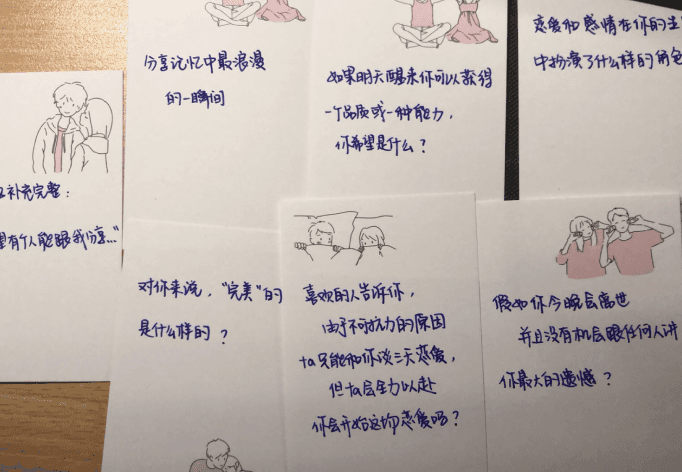 分享记忆中最浪漫
的一瞬间
如果明天醒来你可以获得
一个品质或一种能力，
你希望是什么？
恋爱和感情在你的生
中扮演了什么样的角色
补充完整：
望有个人能跟我分享..."
对你来说，"完美"的
是什么样的？
喜欢的人告诉你，
由于不可抗力的原因
ta只能和你谈三天恋爱，
但ta会全力以赴
你会开始这场恋爱吗？
假如你今晚会离世
并且没有机会跟任何人讲
你最大的遗憾？